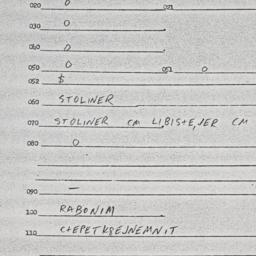 020 0 021
030 0
040 0
050 0 051 0
052 $
060 STOLINER
070 STOLINER CM CM
080 0
090 —
100 RABONIM
110